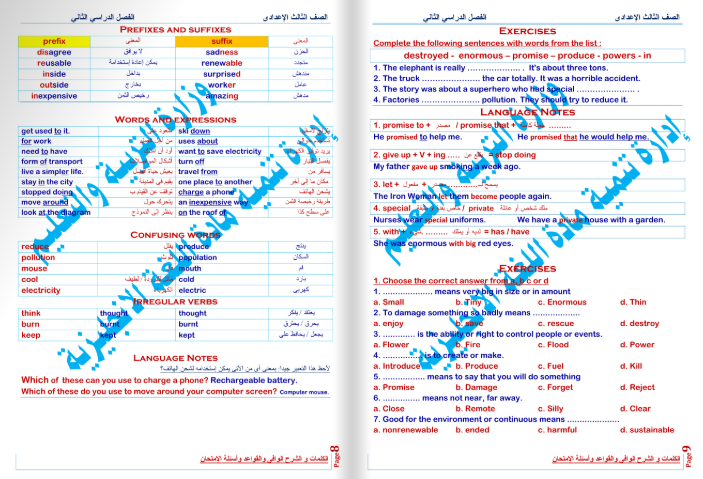 الصف الثالث الإعدادى الفصل الدراسي الثاني
PREFIXES AND SUFFIXES
prefix المعنى suffix المعنى
disagree لا يوافق sadness الحزن
reusable يمكن إعادة إستخدامة renewable متجدد
inside بداخل surprised مندهش
outside بخارج worker عامل
inexpensive رخيص الثمن amazing مدهش
WORDS AND EXPRESSIONS
get used to it. ski down
for work uses about
need to have want to save electricity
form of transport turn off
live a simpler life. travel from
stay in the city one place to another
stopped doing charge a phone
move around an inexpensive way
look at the diagram on the roof of
CONFUSING WORDS
reduce يقلل produce ينتج
pollution population السكان
mouse mouth فم
cool cold بارد
electricity electric كهربي
IRREGULAR VERBS
think thought thought يعتقد / يفكر
burn burnt burnt يحرق / يحترق
keep kept kept يجعل / يحافظ على
LANGUAGE NOTES
لاحظ هذا التعبير جيدا: بمعنى أى من الأتي يمكن إستخدامه لشحن الهاتف؟
Which of these can you use to charge a phone? Rechargeable battery.
Which of these do you use to move around your computer screen? Computer mouse.
الكلمات و الشرح الوافى والقواعد وأسئلة الامتحان
Page 8
الصف الثالث الإعدادى الفصل الدراسي الثاني
EXERCISES
Complete the following sentences with words from the list :
destroyed - enormous – promise – produce - powers - in
1. The elephant is really ………………… . It's about three tons.
2. The truck ………………… the car totally. It was a horrible accident.
3. The story was about a superhero who had special ………………… .
4. Factories ………………… pollution. They should try to reduce it.
LANGUAGE NOTES
1. promise to + مصدر / promise that + ………
He promised to help me. He promised that he would help me.
2. give up + V + ing ….. يقلع عن = stop doing
My father gave up smoking a week ago.
3. let + مفعول + مصدر ………… يسمح
The Iron Woman let them become people again.
4. special / private
Nurses wear special uniforms. We have a private house with a garden.
5. with + ……… = has / have
She was enormous with big red eyes.
EXERCISES
1. Choose the correct answer from a, b c or d
1. ………………… means very big in size or in amount
a. Small b. Tiny c. Enormous d. Thin
2. To damage something so badly means …………………
a. enjoy b. save c. rescue d. destroy
3. ………… is the ability or right to control people or events.
a. Flower b. Fire c. Flood d. Power
4. …………… is to create or make.
a. Introduce b. Produce c. Fuel d. Kill
5. …………… means to say that you will do something
a. Promise b. Damage c. Forget d. Reject
6. …………… means not near, far away.
a. Close b. Remote c. Silly d. Clear
7. Good for the environment or continuous means …………………
a. nonrenewable b. ended c. harmful d. sustainable
الكلمات و الشرح الوافى والقواعد وأسئلة الامتحان
Page 9